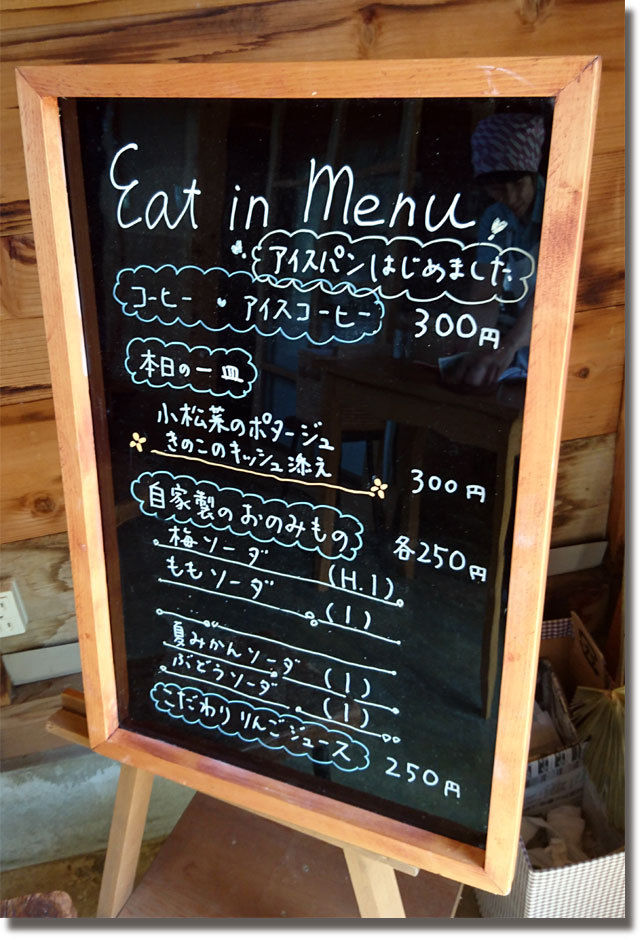 Eat in Menu
アイスパンはじめました
コーヒー・アイスコーヒー 300円
本日の一皿
小松菜のポタージュ
きのこのキッシュ添え 300円
自家製のおのみもの 各250円
梅ソーダ (H.I)
ももソーダ (I)
夏みかんソーダ (I)
ぶどうソーダ (I)
こだわりりんごジュース 250円